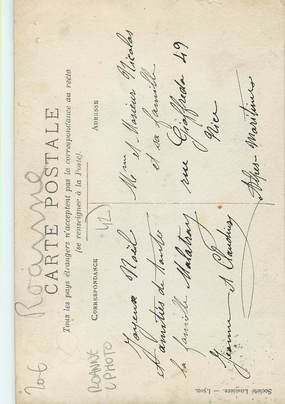 Roanne
CARTE POSTALE
Tous les pays étrangers n'acceptent pas la correspondance au recto
(se renseigner à la Poste).
CORRESPONDANCE
ADRESSE
42
Joyeux Noël
et amitiés de toute
la famille Malatray
Jeanne et Claudius
Mme et Monsieur Nicolas
et sa famille
rue Gioffredo 49
Nice
Alpes Maritimes
206
ROANNE
CPHOTO
Société Lumière. — Lyon.